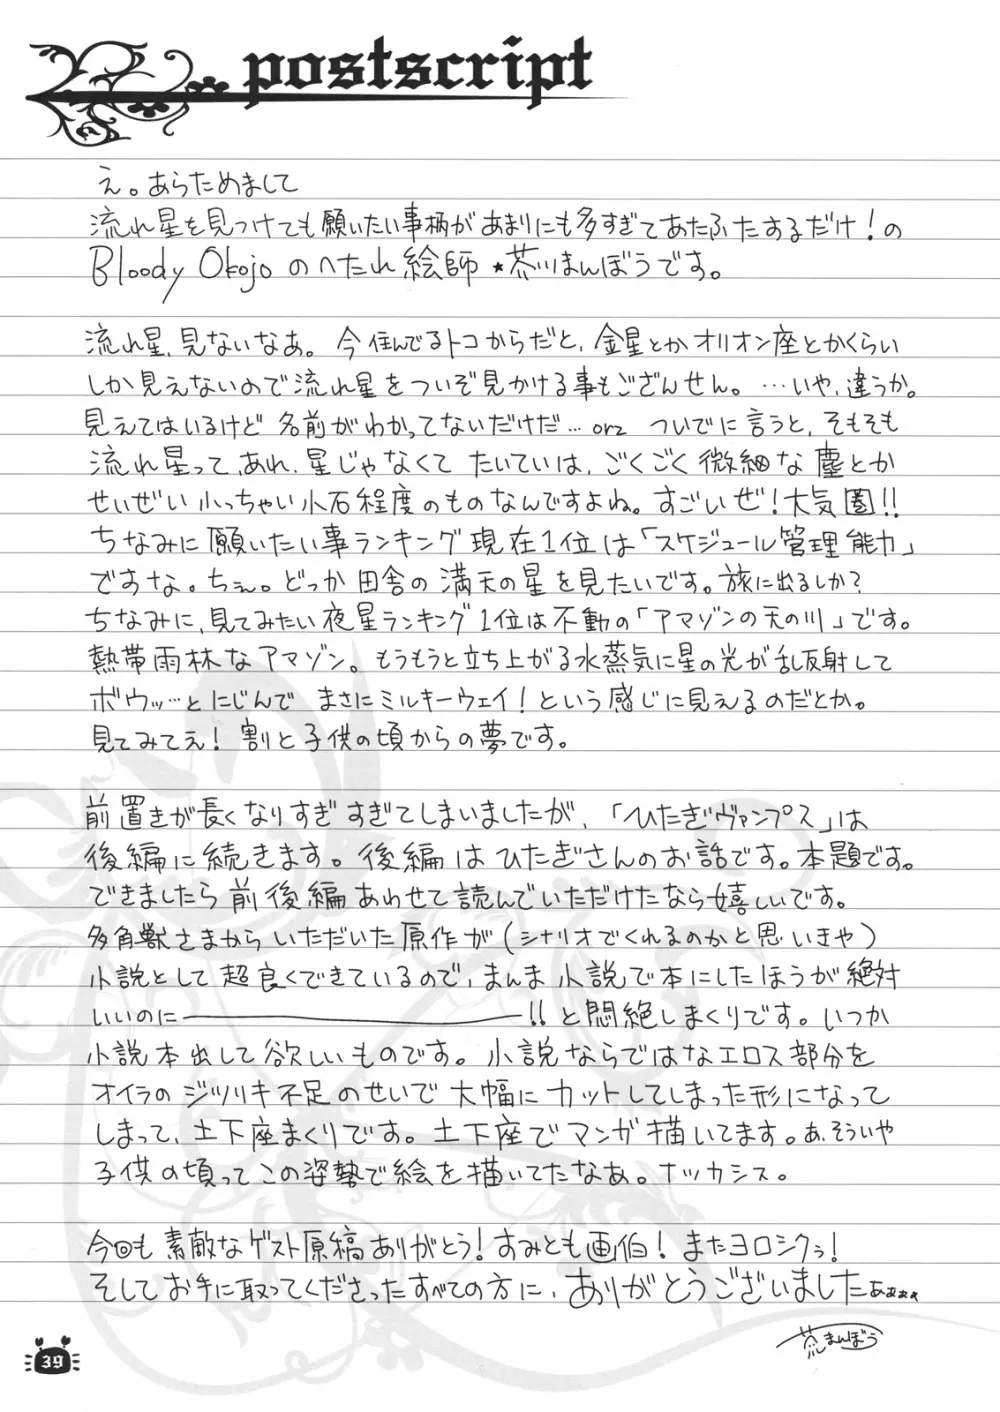 postscript
え。あらためまして
流れ星を見つけても願いたい事柄があまりにも多すぎてあたふたするだけ！の
Bloody Okojo のへたれ絵師★茶川まんぼうです。
流れ星、見ないなあ。今住んでるトコからだと、金星とかオリオン座とかくらい
しか見えないので流れ星をついぞ見かける事もござんせん。…いや、違うか。
見えてはいるけど名前がわかってないだけだ…orz ついでに言うと、そもそも
流れ星って、あれ、星じゃなくてたいていは、ごくごく微細な塵とか
せいぜい小っちゃい小石程度のものなんですよね。すごいぜ！大気圏！！
ちなみに願いたい事ランキング現在1位は「スケジュール管理能力」
ですな。ちぇ。どっか田舎の満天の星を見たいです。旅に出るしか？
ちなみに、見てみたい夜星ランキング1位は不動の「アマゾンの天の川」です。
熱帯雨林なアマゾン。もうもうと立ち上がる水蒸気に星の光が乱反射して
ボウッ…とにじんで まさにミルキーウェイ！という感じに見えるのだとか。
見てみてえ！割と子供の頃からの夢です。
前置きが長くなりすぎすぎてしまいましたが、「ひたぎヴァンプス」は
後編に続きます。後編はひたぎさんのお話です。本題です。
できましたら前後編あわせて読んでいただけたなら嬉しいです。
多角獣さまからいただいた原作が（シナリオでくれるのかと思いきや）
小説として超良くできているので、まんま小説で本にしたほうが絶対
いいのに――――!! と悶絶しまくりです。いつか
小説本出して欲しいものです。小説ならではなエロス部分を
オイラのジツリキ不足のせいで大幅にカットしてしまった形になって
しまって、土下座まくりです。土下座でマンガ描いてます。あ、そういや
子供の頃ってこの姿勢で絵を描いてたなあ。ナッカシス。
今回も素敵なゲスト原稿ありがとう！すみとも画伯！またヨロシクぅ！
そしてお手に取ってくださったすべての方に、ありがとうございましたぁぁぁぁ
まんぼう
39